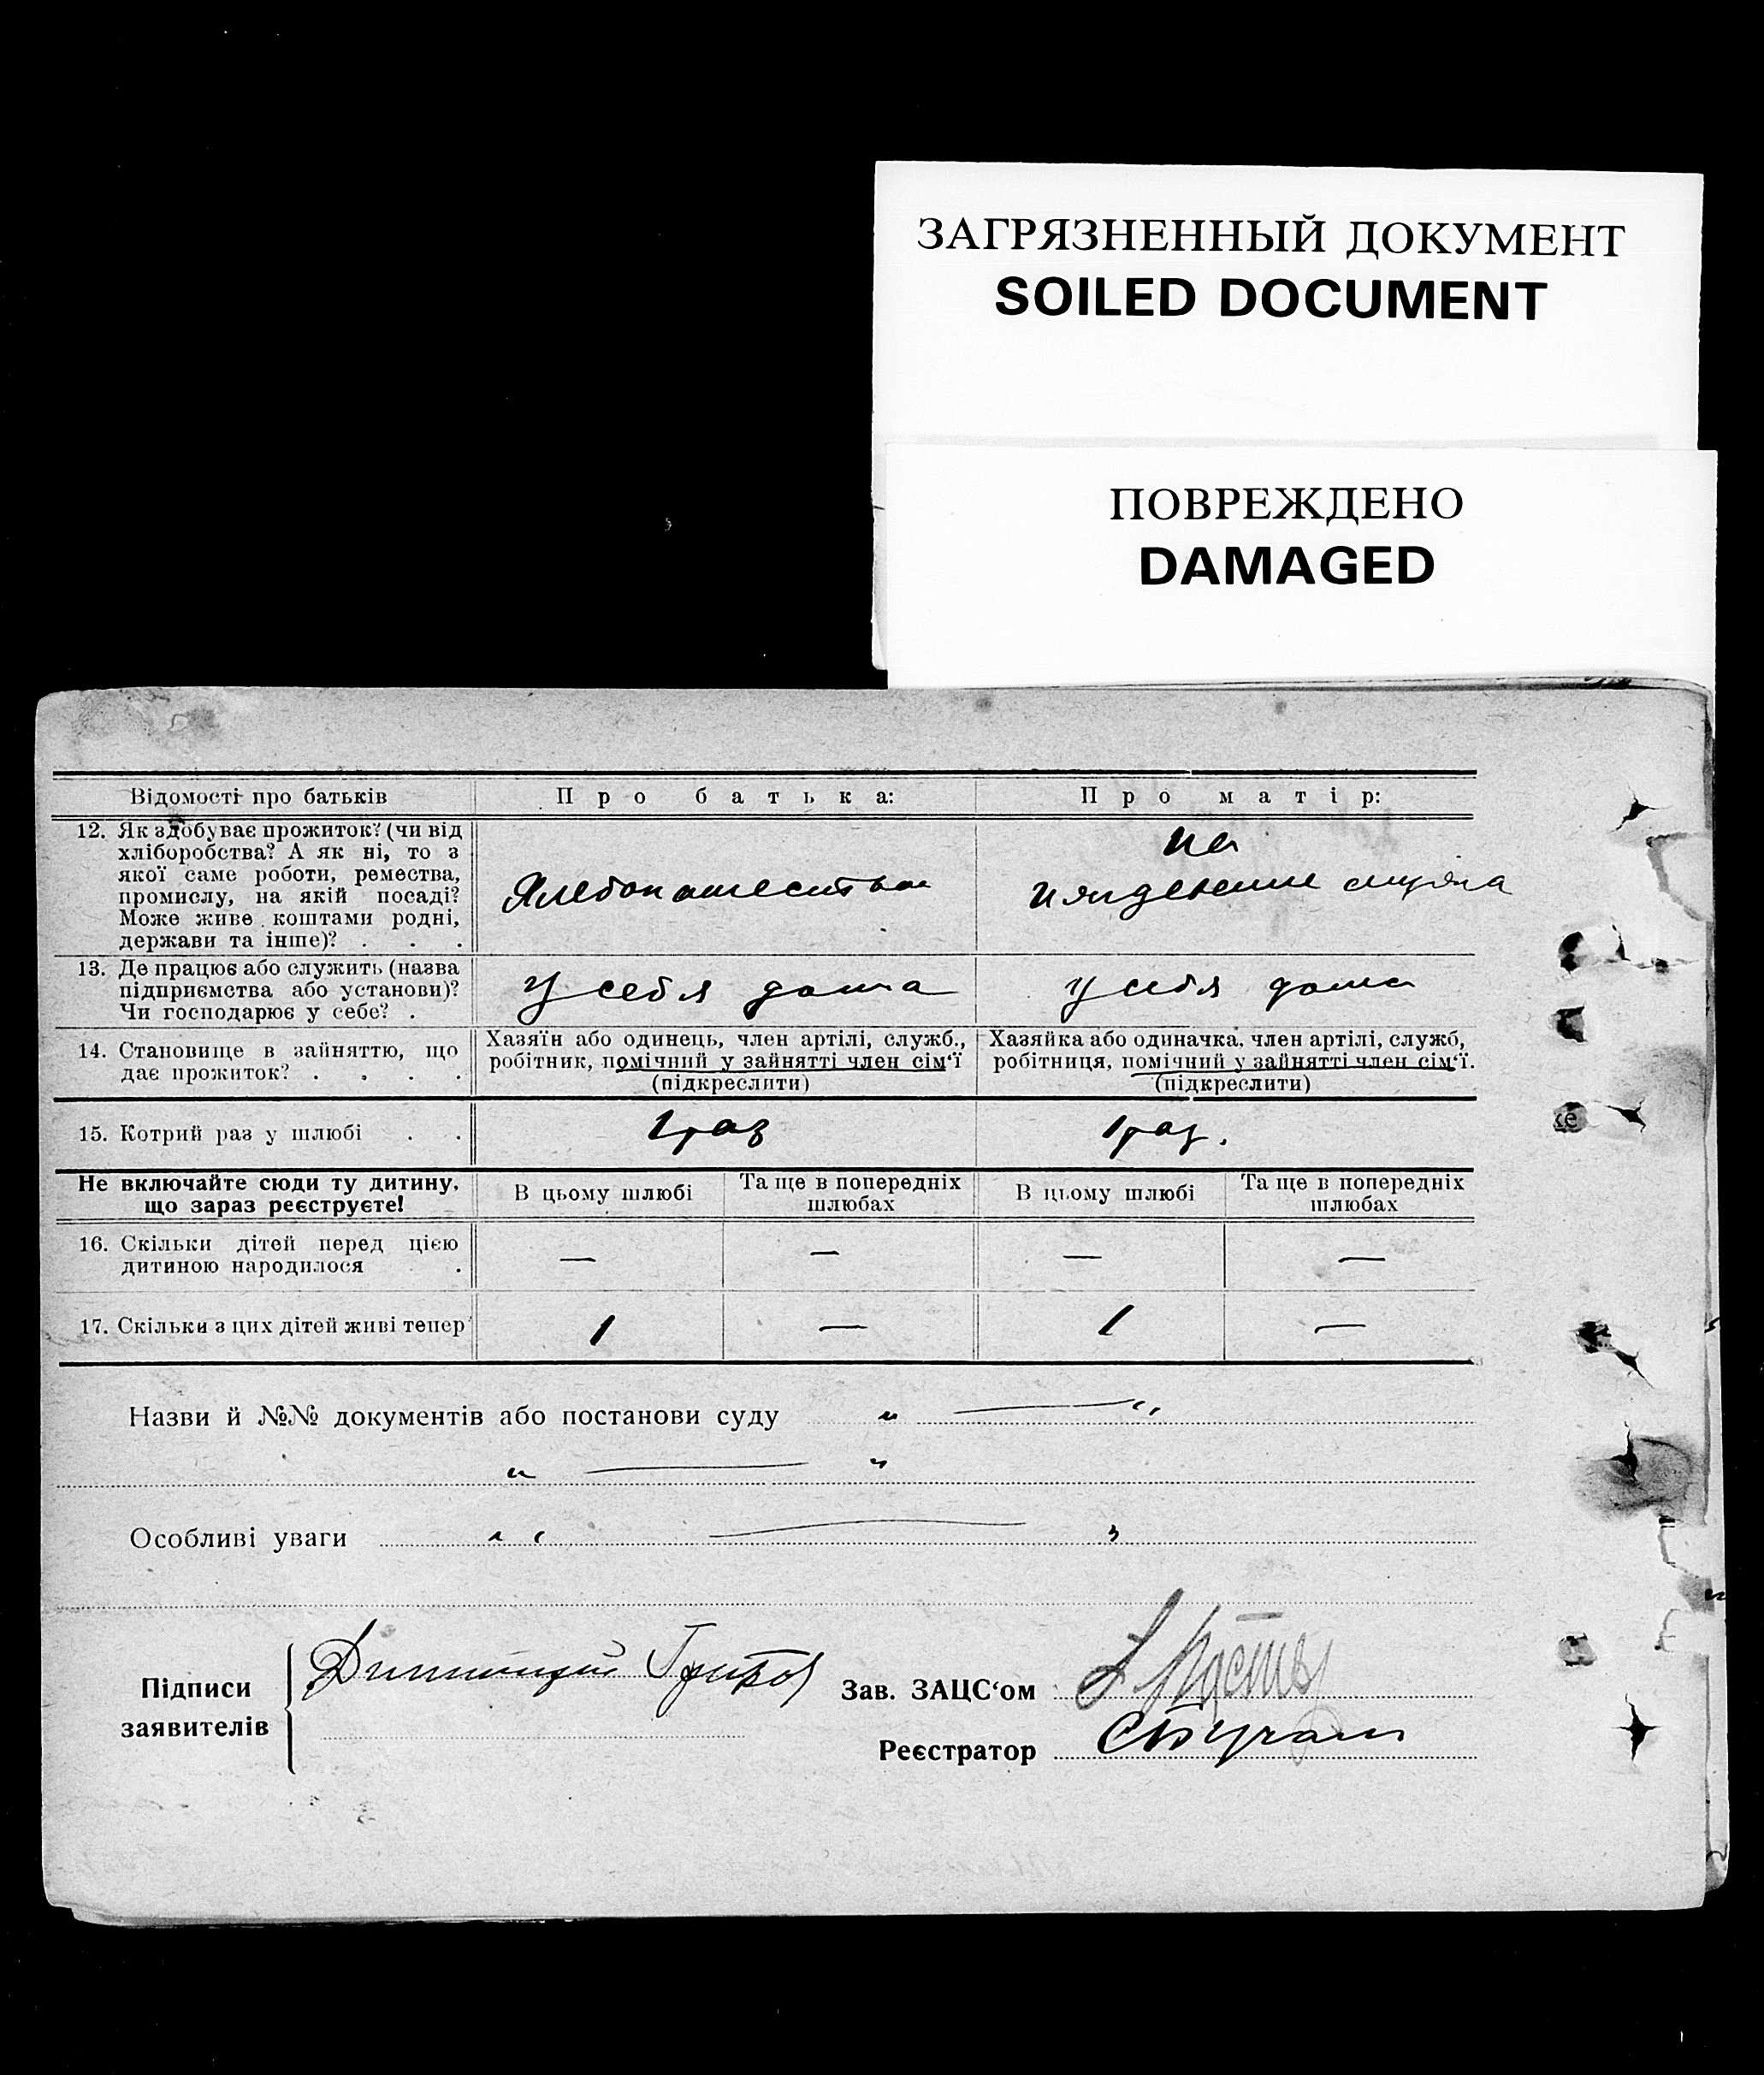 ЗАГРЯЗНЕННЫЙ ДОКУМЕНТ
SOILED DOCUMENT
ПОВРЕЖДЕНО
DAMAGED
Відомості про батьків
Про батька:
Про матір:
12. Як здобуває прожиток? (чи від
хліборобства? А як ні, то з
якої саме роботи, ремества,
промислу, на якій посаді?
Може живе коштами родні,
держави та інше)? . . .
на
мужа
13. Де працює або служить (назва
підприємства або установи)?
Чи господарює у себе? .
у себя дома
у себя дома
14. Становище в зайняттю, що
дає прожиток? . . . .
Хазяїн або одинець, член артілі, служб.,
робітник, помічний у зайнятті член сім'ї
(підкреслити)
Хазяйка або одиначка, член артілі, служб,
робітниця, помічний у зайнятті член сім'ї.
(підкреслити)
15. Котрий раз у шлюбі . .
1 раз
1 раз.
Не включайте сюди ту дитину,
що зараз реєструєте!
В цьому шлюбі
Та ще в попередніх
шлюбах
В цьому шлюбі
Та ще в попередніх
шлюбах
16. Скільки дітей перед цією
дитиною народилося .
— — — —
17. Скільки з цих дітей живі тепер
1 — 1 —
Назви й №№ документів або постанови суду " — "
" — "
Особливі уваги
Підписи
заявителів
Зав. ЗАЦС'ом
Реєстратор